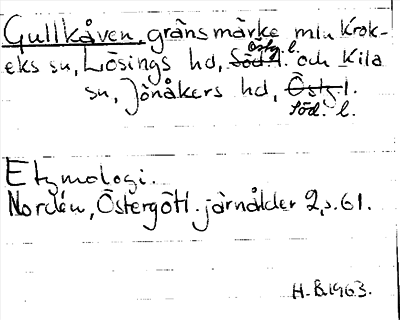 Gullkåven, gränsmärke mlu Krok-
eks sn, Lösings hd, Söd. l. Östg. l. och Kila
sn, Jönåkers hd, Östg. l.
Söd. l.
Etymologi.
Nordén, Östergötl. järnålder 2, s. 61.
H. B. 1963.